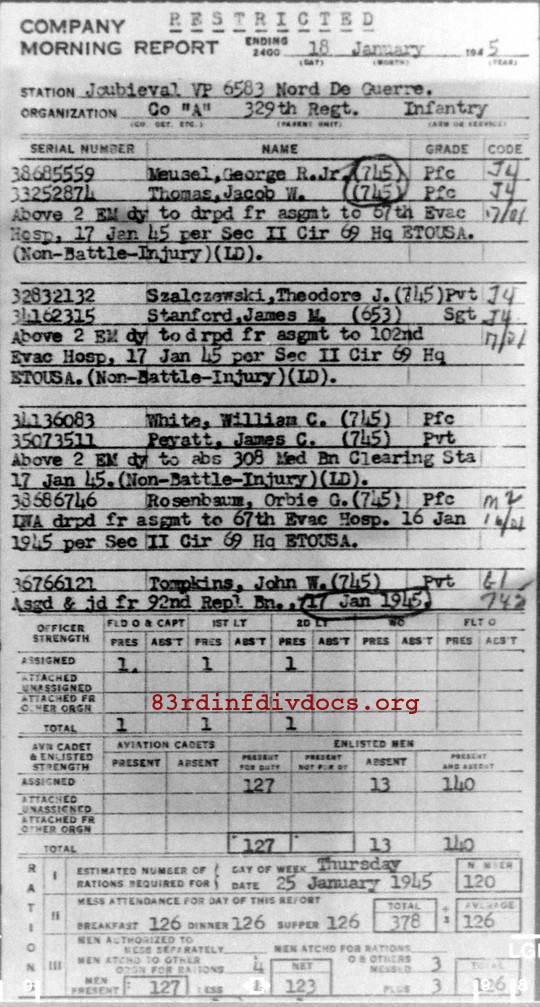 RESTRICTED
COMPANY
MORNING REPORT ENDING 2400 18 January 1945
(DAY) (MONTH) (YEAR)
STATION Joubieval VP 6583 Nord De Guerre.
ORGANIZATION Co "A" 329th Regt. Infantry
(CO. DET. ETC.) (PARENT UNIT) (ARM OR SERVICE)
SERIAL NUMBER NAME GRADE CODE
38685559 Meusel,George R.Jr.(745) Pfc J4
33252874 Thomas,Jacob W. (745) Pfc J4
Above 2 EM dy to drpd fr asgmt to 67th Evac 17/01
Hosp, 17 Jan 45 per Sec II Cir 69 Hq ETOUSA.
(Non-Battle-Injury)(LD).
32832132 Szalczewski,Theodore J.(745)Pvt J4
34162315 Stanford,James M. (653) Sgt J4
Above 2 EM dy to drpd fr asgmt to 102nd 17/01
Evac Hosp, 17 Jan 45 per Sec II Cir 69 Hq
ETOUSA.(Non-Battle-Injury)(LD).
34136083 White, William C. (745) Pfc
35073511 Peyatt, James C. (745) Pvt
Above 2 EM dy to abs 308 Med Bn Clearing Sta
17 Jan 45.(Non-Battle-Injury)(LD).
38686746 Rosenbaum, Orbie G.(745) Pfc M2
LWA drpd fr asgmt to 67th Evac Hosp. 16 Jan 16/01
1945 per Sec II Cir 69 Hq ETOUSA.
36766121 Tompkins, John W.(745) Pvt
Asgd & jd fr 92nd Repl Bn., 17 Jan 1945. 745
OFFICER STRENGTH FLD O & CAPT 1ST LT 2D LT WO FLT O
PRES ABS'T PRES ABS'T PRES ABS'T PRES ABS'T PRES ABS'T
ASSIGNED 1. 1 1
ATTACHED UNASSIGNED
ATTACHED FR OTHER ORGN
TOTAL 1 1 1
83rdinfdivdocs.org
AVN CADET & ENLISTED STRENGTH AVIATION CADETS ENLISTED MEN
PRESENT ABSENT PRESENT FOR DUTY PRESENT NOT FOR DY ABSENT PRESENT AND ABSENT
ASSIGNED 127 13 140
ATTACHED UNASSIGNED
ATTACHED FR OTHER ORGN
TOTAL 127 13 140
RATIONS
I ESTIMATED NUMBER OF RATIONS REQUIRED FOR DAY OF WEEK Thursday NUMBER
DATE 25 January 1945 120
II MESS ATTENDANCE FOR DAY OF THIS REPORT TOTAL ÷ 3 AVERAGE
BREAKFAST 126 DINNER 126 SUPPER 126 378 126
III MEN AUTHORIZED TO MESS SEPARATELY MEN ATCHD FOR RATIONS
MEN ATCHD TO OTHER ORGN FOR RATIONS 4 NET O & OTHERS MESSED 3
MEN PRESENT 127 LESS 123 PLUS 3 126